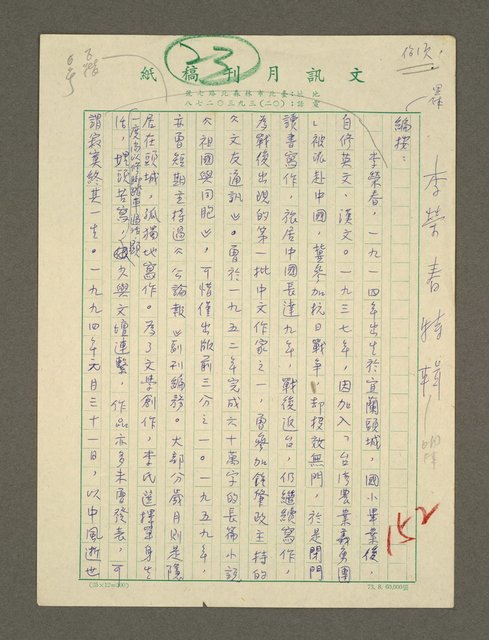 23
文訊月刊稿紙
地址：臺北市林森北路七號
電話：(〇二)三九三〇二七八
李榮春特輯
152
編按：
李榮春，一九一四年出生於宜蘭頭城，國小畢業後，
自修英文、漢文。一九三七年，因加入「台灣農業義勇團
」被派赴中國，冀參加抗日戰爭，却投效無門，於是閉門
讀書寫作，旅居中國長達九年，戰後返台，仍繼續寫作，
為戰後出現的第一批中文作家之一，曾參加鍾肇政主持的
《文友通訊》。曾於一九五二年完成六十萬字的長篇小說
《祖國與同胞》，可惜僅出版前三分之一。一九五九年，
亦曾短期主持過《公論報》副刊編務。大部分歲月則是隱
居在頭城，孤獨地寫作。為了文學創作，李氏選擇單身生
活，一度高以修腳踏車過活，埋頭苦寫，久與文壇連繫，作品亦多未曾發表，可
謂寂寞終其一生。一九九四年元月三十一日，以中風逝世
(25×12=300)
73. 8. 60,000張